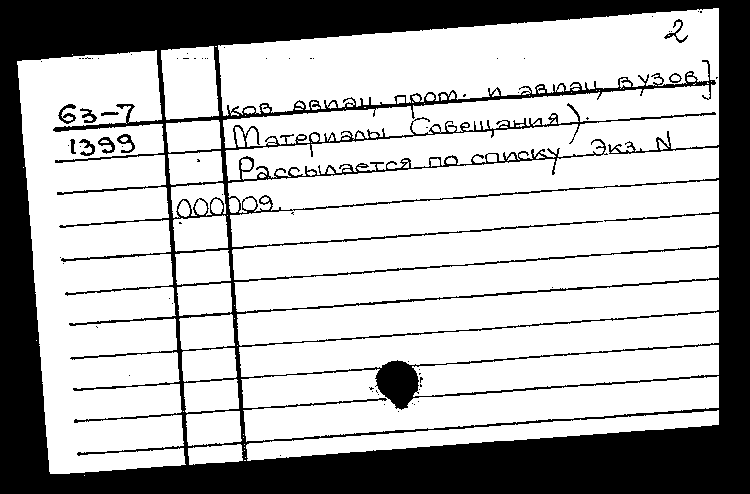 2
63-7
1399
ков авиац. пром. и авиац. вузов]
Материалы Совещания).
Рассылается по списку. Экз. N
000009.